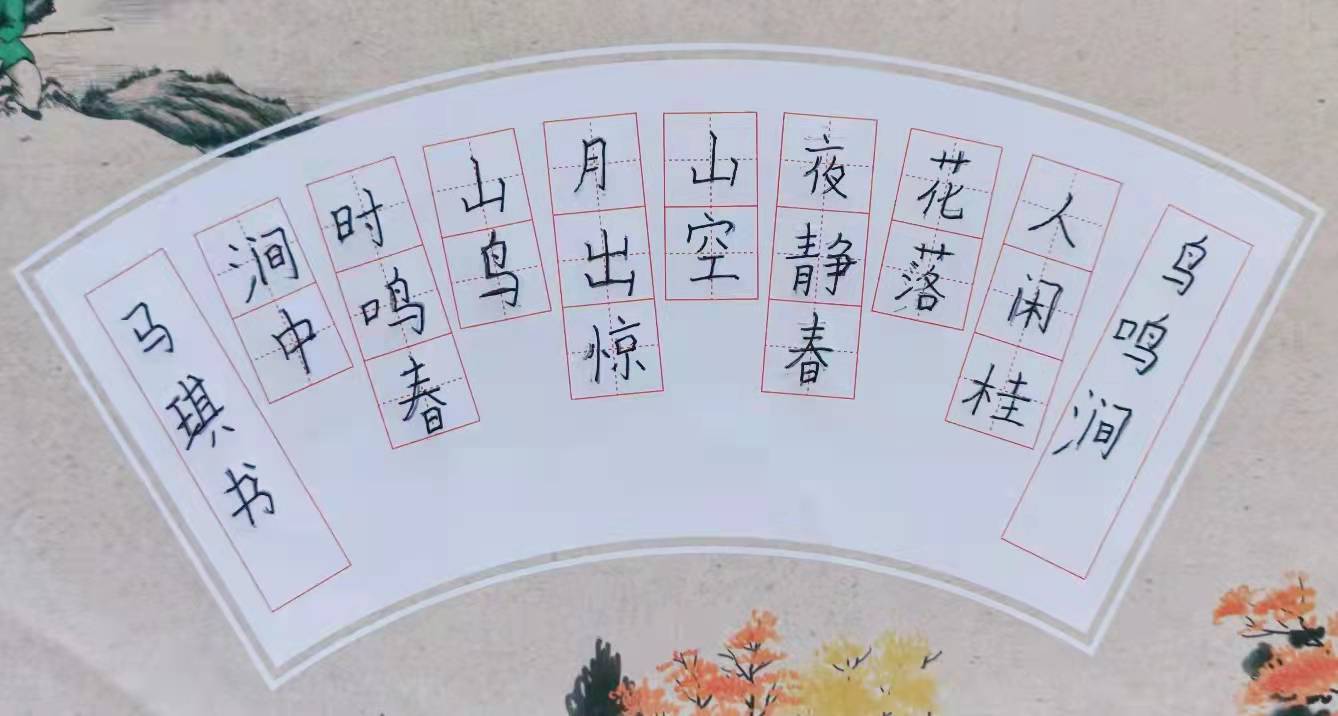 鸟鸣涧
人闲桂
花落
夜静春
山空
月出惊
山鸟
时鸣春
涧中
马琪书